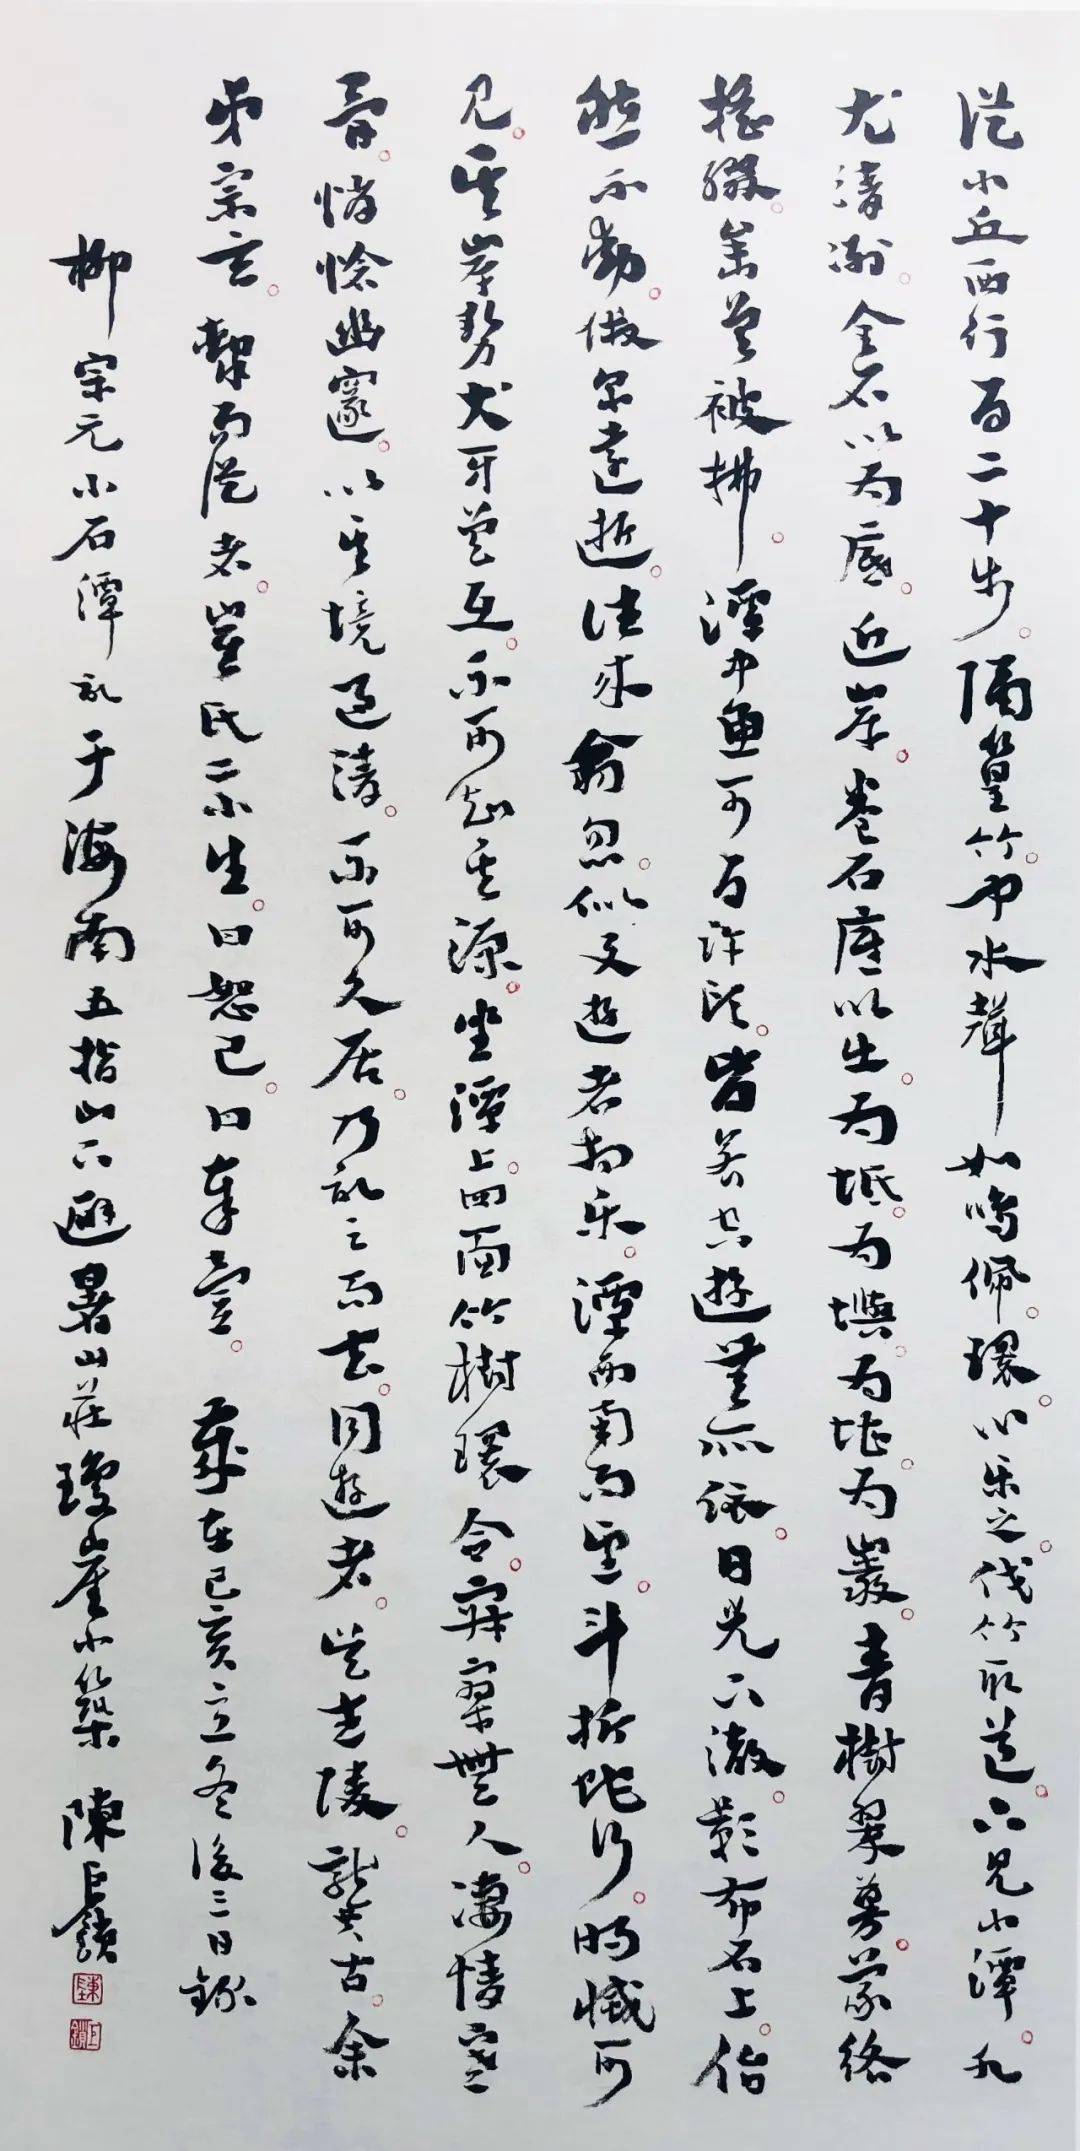 從小丘西行百二十步。隔篁竹。中水聲如鳴佩。環。心乐之。伐竹取道。下見小潭。水
尤清冽。全石以為底。近岸。卷石底以出。為坻。為嶼。為堪。為巖。青樹翠蔓。蒙络
摇缀。參差被拂。潭中鱼可百許頭。皆若空遊無所依。日光下澈。影布石上。佁
然不動。俶尔遠逝。往來翕忽。似与遊者相乐。潭西南而望。斗折蛇行。明滅可
見。其岸勢犬牙差互。不可知其源。坐潭上。四面竹樹環合。寂寥無人。凄愴寒
骨。悄愴幽邃。以其境過清。不可久居。乃記之而去。同遊者。吴武陵龔古。余
弟宗玄。隸而從者。崔氏二小生。曰恕己。曰奉壹。 歲在己亥立冬後二日錄
柳宗元小石潭記于海南五指山下避暑山莊瓊崖小築 陳巨鎖
陳
巨鎖